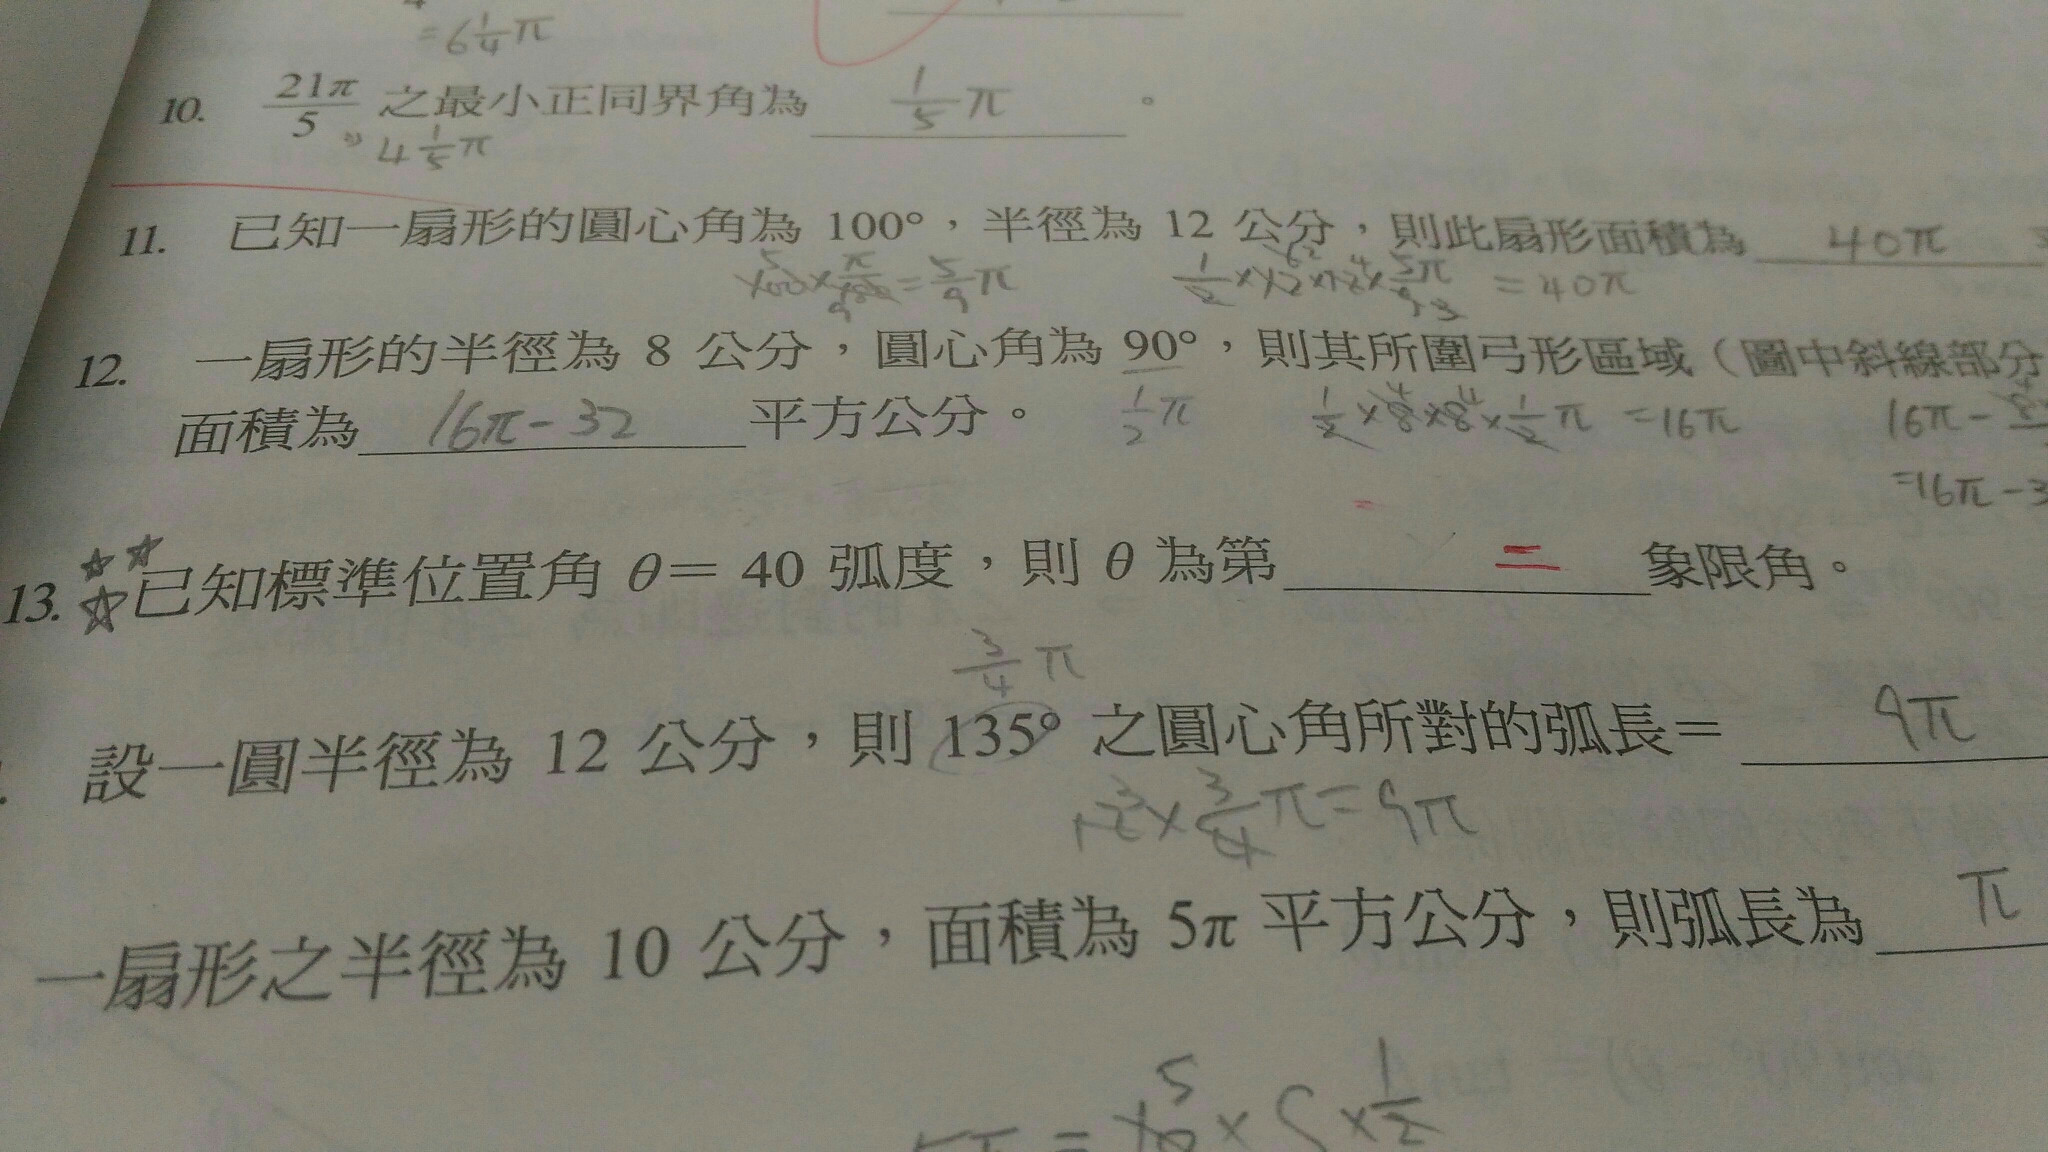 = 6 1/4 π
10. 21π/5 之最小正同界角為 1/5 π 。
4 1/5 π
11. 已知一扇形的圓心角為 100°，半徑為 12 公分，則此扇形面積為 40π
100 × π/180 = 5/9 π 1/2 × 12 × 12 × 5π/9 = 40π
12. 一扇形的半徑為 8 公分，圓心角為 90°，則其所圍弓形區域（圖中斜線部分
面積為 16π-32 平方公分。 1/2 π 1/2 × 8 × 8 × 1/2 π = 16π 16π-
=16π-3
13. 已知標準位置角 θ= 40 弧度，則 θ 為第 二 象限角。
3/4 π
設一圓半徑為 12 公分，則 135° 之圓心角所對的弧長= 9π
12 × 3/4 π = 9π
一扇形之半徑為 10 公分，面積為 5π 平方公分，則弧長為 π
5π = 10 × S × 1/2